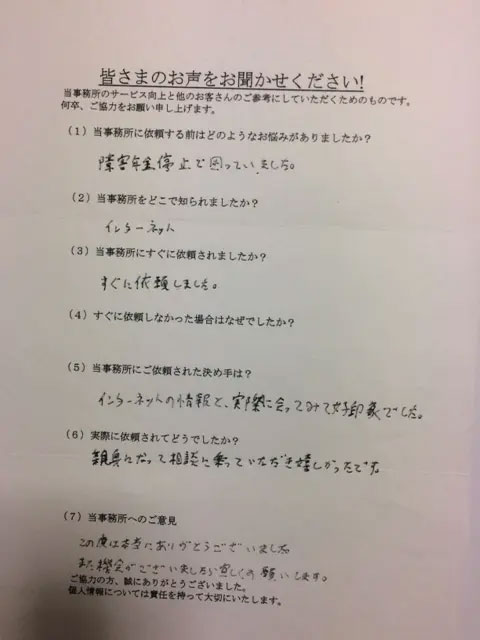 皆さまのお声をお聞かせください!
当事務所のサービス向上と他のお客さんのご参考にしていただくためのものです。
何卒、ご協力をお願い申し上げます。
(1)当事務所に依頼する前はどのようなお悩みがありましたか?
障害年金停止で困っていました。
(2)当事務所をどこで知られましたか?
インターネット
(3)当事務所にすぐに依頼されましたか?
すぐに依頼しました。
(4)すぐに依頼しなかった場合はなぜでしたか?
(5)当事務所にご依頼された決め手は?
インターネットの情報と、実際に会ってみて好印象でした。
(6)実際に依頼されてどうでしたか?
親身になって相談に乗っていただき嬉しかったです。
(7)当事務所へのご意見
この度は本当にありがとうございました。
また機会がございましたら宜しくお願いします。
ご協力の方、誠にありがとうございました。
個人情報については責任を持って大切にいたします。